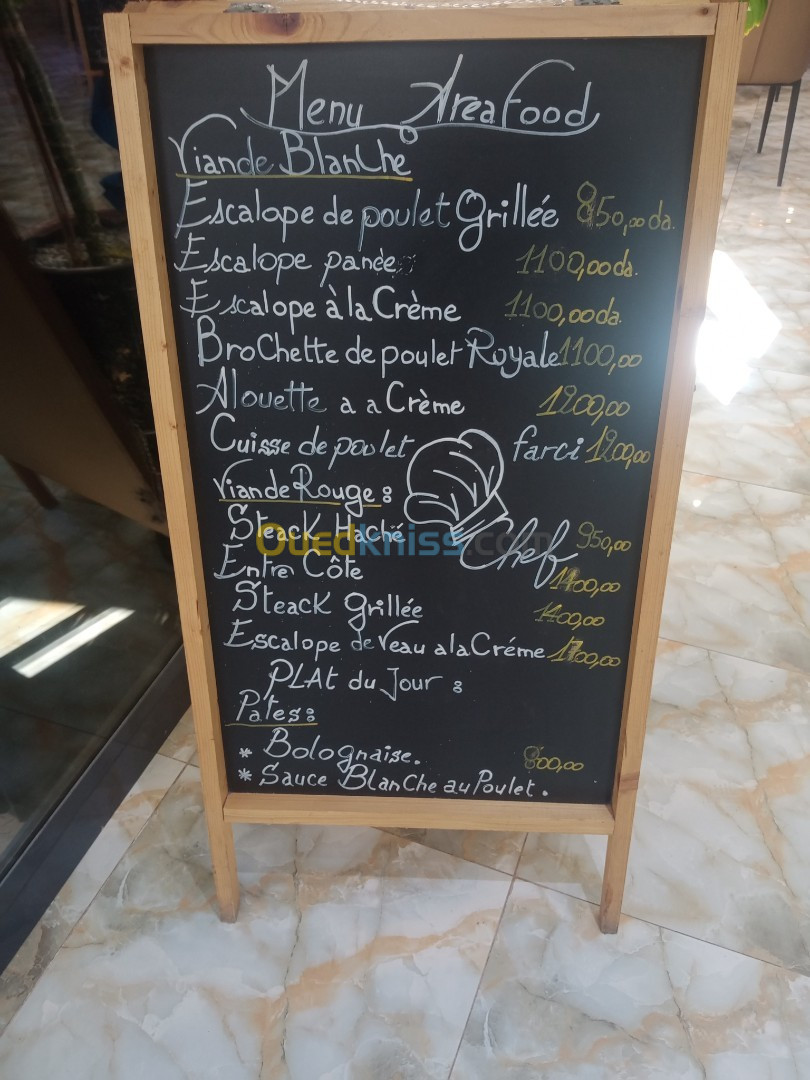 Menu AreaFood
Viande Blanche
Escalope de poulet Grillée 850,00da.
Escalope panée 1100,00da.
Escalope à la Crème 1100,00da.
BroChette de poulet Royale 1100,00
Alouette a a Crème 1200,00
Cuisse de poulet farci 1200,00
Viande Rouge :
Steack Haché 950,00
Chef
Entre Côte 1400,00
Steack grillée 1400,00
Escalope de Veau a la Créme 1700,00
PLAt du Jour :
Pâtes :
* Bolognaise. 800,00
* Sauce BlanChe au Poulet.
Ouedkniss.com